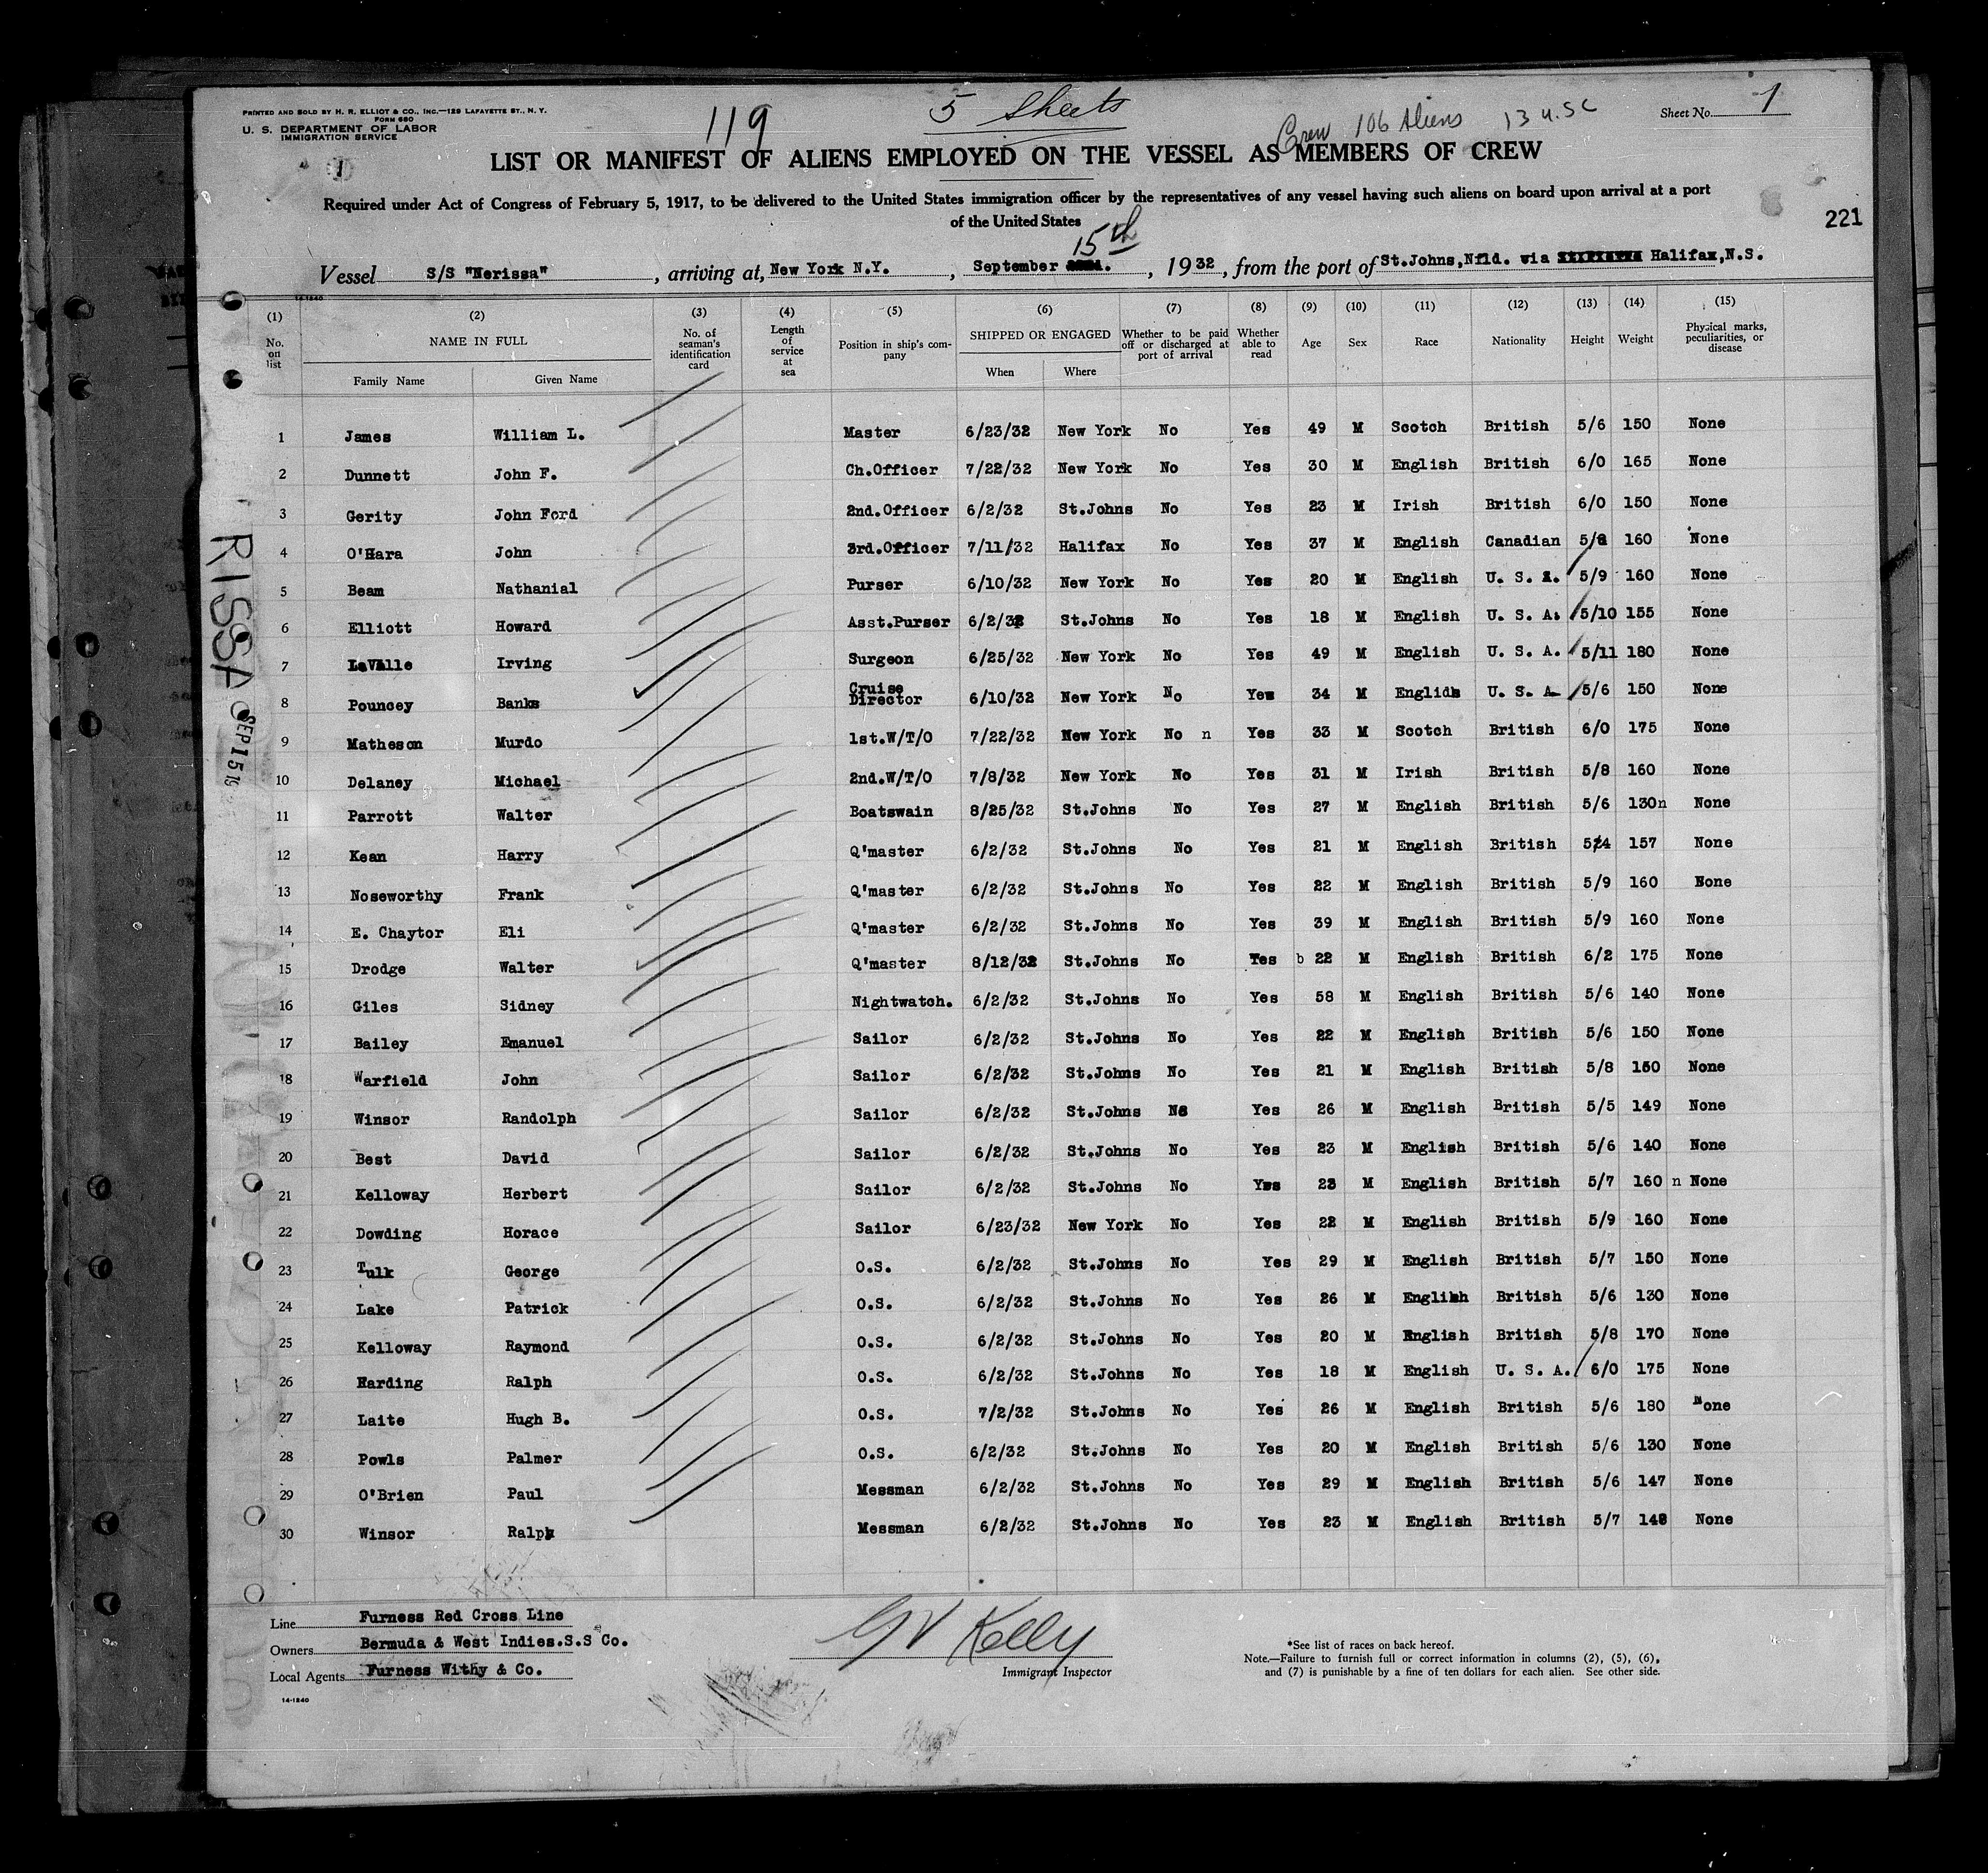 PRINTED AND SOLD BY H. R. ELLIOT & CO., INC.—129 LAFAYETTE ST., N. Y.
FORM 680
U. S. DEPARTMENT OF LABOR
IMMIGRATION SERVICE
119
5 Sheets
Crew 106 Aliens 13 U.S.C
Sheet No. 1
1
LIST OR MANIFEST OF ALIENS EMPLOYED ON THE VESSEL AS MEMBERS OF CREW
Required under Act of Congress of February 5, 1917, to be delivered to the United States immigration officer by the representatives of any vessel having such aliens on board upon arrival at a port
of the United States
221
15th
Vessel S/S "Nerissa", arriving at, New York N.Y., September, 1932, from the port of St.Johns,Nfld. via Halifax,N.S.
14-1240
(1) No. on list (2) NAME IN FULL Family Name Given Name (3) No. of seaman's identification card (4) Length of service at sea (5) Position in ship's company (6) SHIPPED OR ENGAGED When Where (7) Whether to be paid off or discharged at port of arrival (8) Whether able to read (9) Age (10) Sex (11) Race (12) Nationality (13) Height (14) Weight (15) Physical marks, peculiarities, or disease
1 James William L. Master 6/23/32 New York No Yes 49 M Scotch British 5/6 150 None
2 Dunnett John F. Ch.Officer 7/22/32 New York No Yes 30 M English British 6/0 165 None
3 Gerity John Ford 2nd.Officer 6/2/32 St.Johns No Yes 23 M Irish British 6/0 150 None
4 O'Hara John 3rd.Officer 7/11/32 Halifax No Yes 37 M English Canadian 5/8 160 None
5 Beam Nathanial Purser 6/10/32 New York No Yes 20 M English U. S. A. 5/9 160 None
6 Elliott Howard Asst.Purser 6/2/32 St.Johns No Yes 18 M English U. S. A. 5/10 155 None
7 LaValle Irving Surgeon 6/25/32 New York No Yes 49 M English U. S. A. 5/11 180 None
8 Pouncey Banks Cruise Director 6/10/32 New York No Yes 34 M English U. S. A 5/6 150 None
9 Matheson Murdo 1st.W/T/O 7/22/32 New York No n Yes 33 M Scotch British 6/0 175 None
10 Delaney Michael 2nd.W/T/O 7/8/32 New York No Yes 31 M Irish British 5/8 160 None
11 Parrott Walter Boatswain 8/25/32 St.Johns No Yes 27 M English British 5/6 130n None
12 Kean Harry Q'master 6/2/32 St.Johns No Yes 21 M English British 5/4 157 None
13 Noseworthy Frank Q'master 6/2/32 St.Johns No Yes 22 M English British 5/9 160 None
14 E. Chaytor Eli Q'master 6/2/32 St.Johns No Yes 39 M English British 5/9 160 None
15 Drodge Walter Q'master 8/12/32 St.Johns No Yes b 22 M English British 6/2 175 None
16 Giles Sidney Nightwatch. 6/2/32 St.Johns No Yes 58 M English British 5/6 140 None
17 Bailey Emanuel Sailor 6/2/32 St.Johns No Yes 22 M English British 5/6 150 None
18 Warfield John Sailor 6/2/32 St.Johns No Yes 21 M English British 5/8 150 None
19 Winsor Randolph Sailor 6/2/32 St.Johns No Yes 26 M English British 5/5 149 None
20 Best David Sailor 6/2/32 St.Johns No Yes 23 M English British 5/6 140 None
21 Kelloway Herbert Sailor 6/2/32 St.Johns No Yes 23 M English British 5/7 160 n None
22 Dowding Horace Sailor 6/23/32 New York No Yes 22 M English British 5/9 160 None
23 Tulk George O.S. 6/2/32 St.Johns No Yes 29 M English British 5/7 150 None
24 Lake Patrick O.S. 6/2/32 St.Johns No Yes 26 M English British 5/6 130 None
25 Kelloway Raymond O.S. 6/2/32 St.Johns No Yes 20 M English British 5/8 170 None
26 Harding Ralph O.S. 6/2/32 St.Johns No Yes 18 M English U. S. A. 6/0 175 None
27 Laite Hugh B. O.S. 7/2/32 St.Johns No Yes 26 M English British 5/6 180 None
28 Powls Palmer O.S. 6/2/32 St.Johns No Yes 20 M English British 5/6 130 None
29 O'Brien Paul Messman 6/2/32 St.Johns No Yes 29 M English British 5/6 147 None
30 Winsor Ralph Messman 6/2/32 St.Johns No Yes 23 M English British 5/7 148 None
RISSA
SEP 15
Line Furness Red Cross Line
Owners Bermuda & West Indies.S.S Co.
Local Agents Furness Withy & Co.
14-1240
GV Kelly
Immigrant Inspector
*See list of races on back hereof.
Note.—Failure to furnish full or correct information in columns (2), (5), (6),
and (7) is punishable by a fine of ten dollars for each alien. See other side.